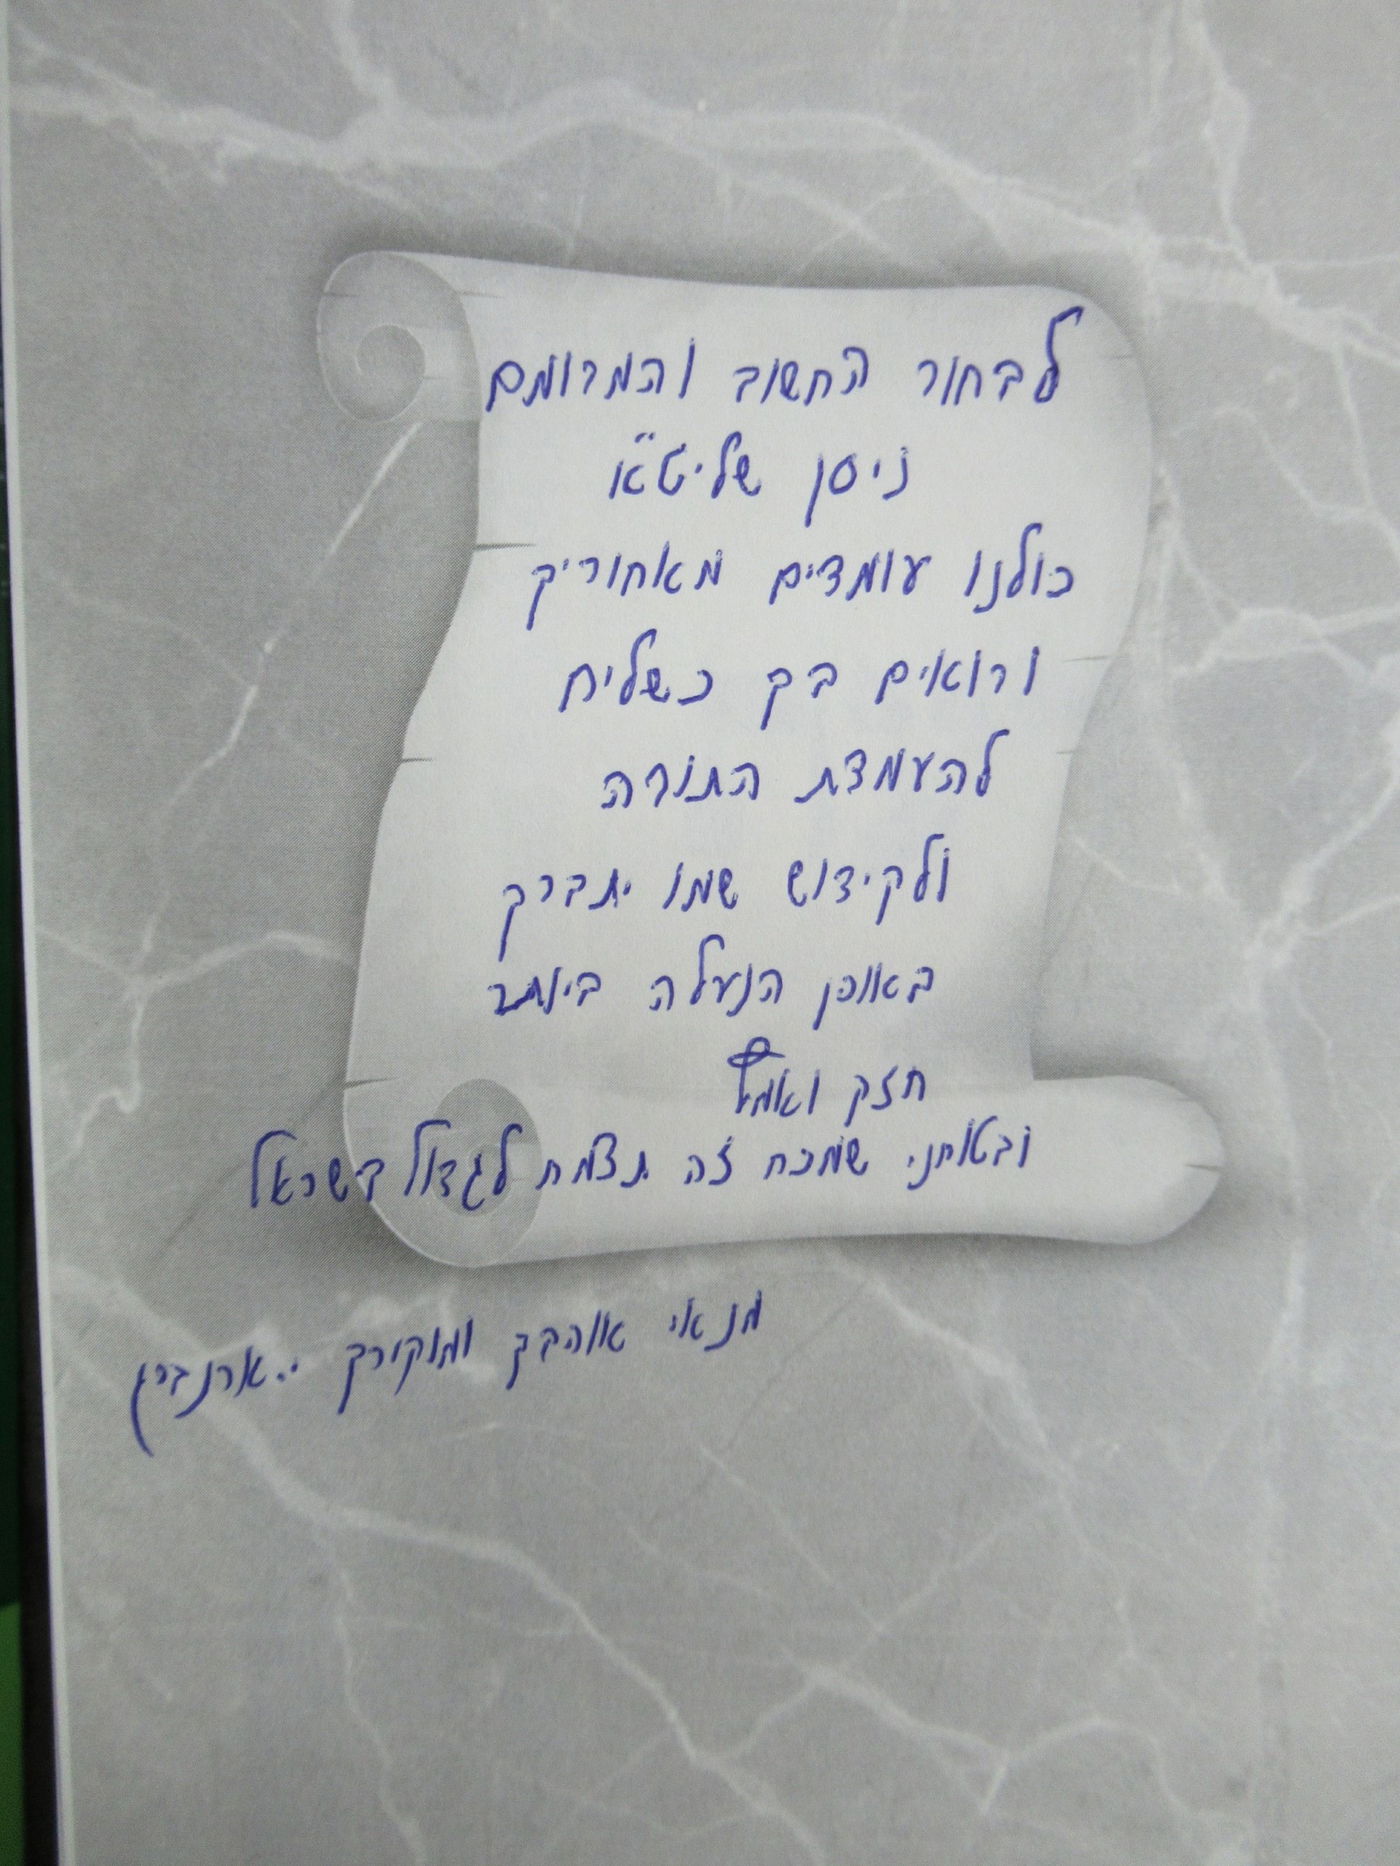 לבחור החשוב והמרומם
ניסן שליט"א
כולנו עומדים מאחוריך
ורואים בך כשליח
להעמדת התורה
ולקידוש שמו יתברך
באופן הנעלה ביותר
חזק ואמץ
ובטוחני שמכח זה תצמח לגדול בישראל
מנאי אוהבך ומוקירך י. ארנברג